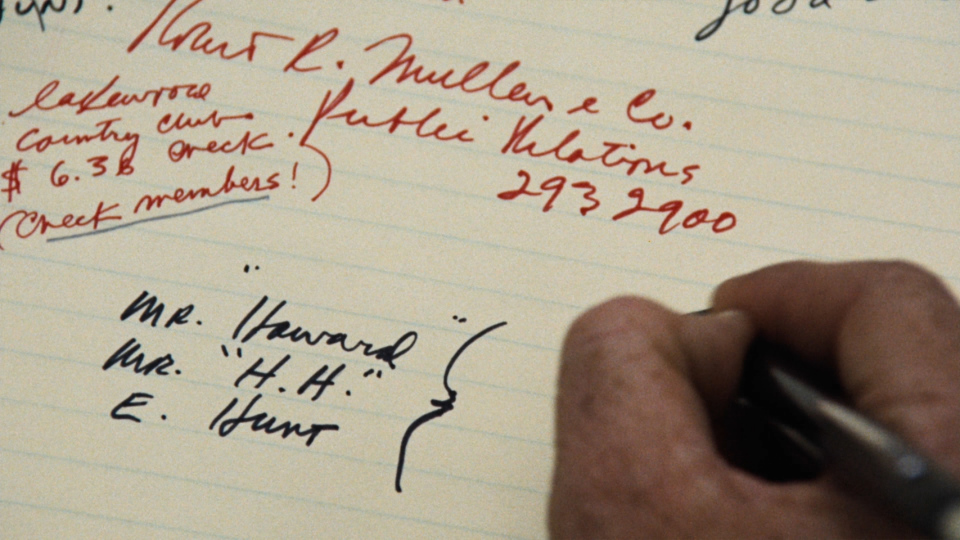 Robert R. Mullen & Co.
Public Relations
293 2900
Lakewood
Country club
$ 6.36 check.
(Check members!)
MR. "Howard"
MR. "H.H."
E. Hunt